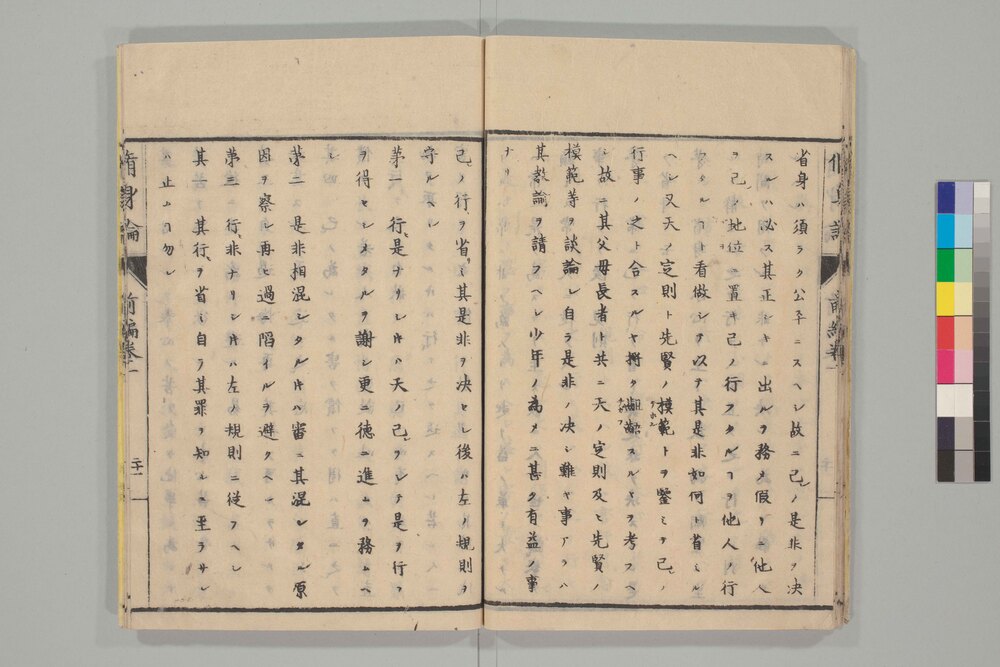 省身ハ須ラク公平ニスヘシ故ニ己ノ是非ヲ決
スルハ必ス其正シキニ出ルヲ務メ假リニ他人
ヲ己ノ地位ニ置キ己ノ行フタルヿヲ他人ノ行
フタルヿト看做シテ以テ其是非如何ト省ミル
ヘシ又天ノ定則ト先賢ノ模範トヲ鑒ミテ己ノ
行事ノ之ト合スルヤ将タ齟齬スルヤヲ考フヘ
シ故ニ其父母長者ト共ニ天ノ定則及ヒ先賢ノ
模範等ヲ談論シ自ラ是非ノ決シ難キ事アラハ
其教諭ヲ請フヘシ少年ノ為メニ甚タ有益ノ事
ナリ
己ノ行ヲ省ミ其是非ヲ決セシ後ハ左ノ規則ヲ
守ルヘシ
第一 行是ナリシ片ハ天ノ己ヲシテ是ヲ行フ
ヲ得セシメタルヲ謝シ更ニ徳ニ進ムヲ務ムヘ
シ
第二 是非相混シタル片ハ審ニ其混シタル原
因ヲ察シ再ヒ過ニ陷イルヲ避クヘシ
第三 行非ナリシ片ハ左ノ規則ニ従フヘシ
其一 其行ヲ省ミ自ラ其罪ヲ知ルニ至ラサレ
ハ止ム勿レ
脩身論 前編巻一 二十一